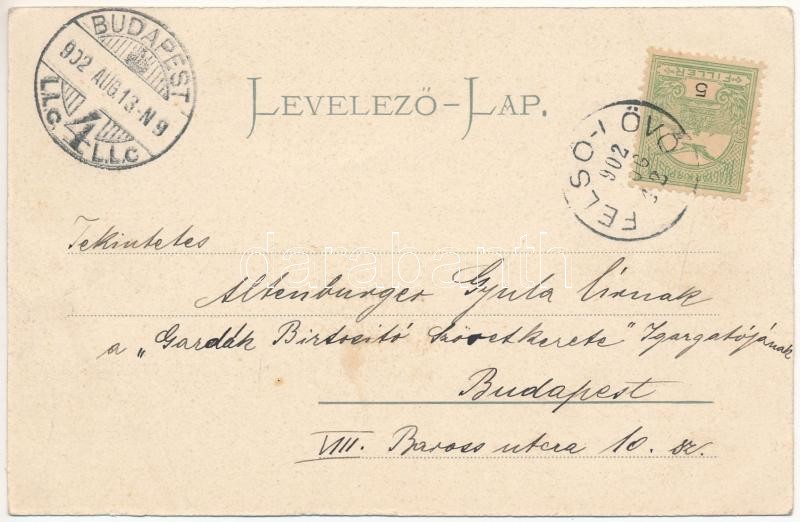 BUDAPEST
902 AUG.13-N9
I.I.C. 4 I.I.C
LEVELEZŐ-LAP.
FELSŐ-
ÖVŐ
902
FILLÉR
5
darabanth
Tekintetes
Altenburger Gyula Úrnak
a „Gazdák Biztositó Szövetkezete" Igazgatójának
Budapest
VIII. Baross utcza 10. sz.